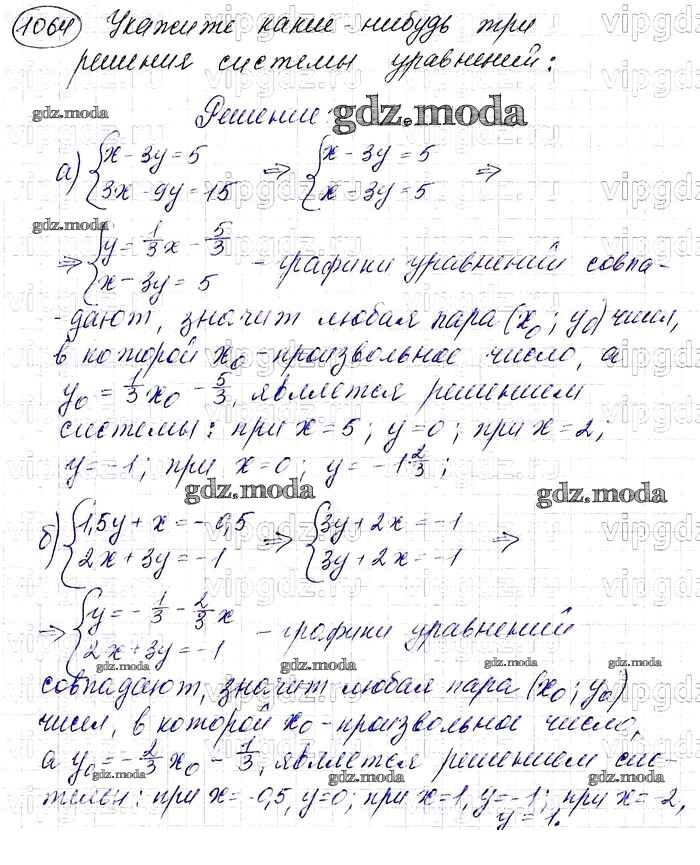 1064 Укажите какие-нибудь три
решения системы уравнений:
Решение:
gdz.moda
gdz.moda
а) { x - 3y = 5 ⇒ { x - 3y = 5 ⇒
3x - 9y = 15 x - 3y = 5
gdz.moda
⇒ { y = 1/3 x - 5/3 - графики уравнений совпа-
x - 3y = 5
-дают, значит любая пара (x₀; y₀) чисел,
в которой x₀ - произвольное число, а
y₀ = 1/3 x₀ - 5/3, является решением
системы: при x = 5; y = 0; при x = 2;
y = -1; при x = 0; y = -1 2/3;
gdz.moda
gdz.moda
б) { 1,5y + x = -0,5 ⇒ { 3y + 2x = -1 ⇒
2x + 3y = -1 3y + 2x = -1
⇒ { y = -1/3 - 2/3 x - графики уравнений
2x + 3y = -1
gdz.moda gdz.moda gdz.moda
совпадают, значит любая пара (x₀; y₀)
чисел, в которой x₀ - произвольное число,
а y₀ = -2/3 x₀ - 1/3, является решением сис-
gdz.moda gdz.moda gdz.moda
темы: при x = -0,5, y = 0; при x = 1, y = -1; при x = -2,
y = 1.